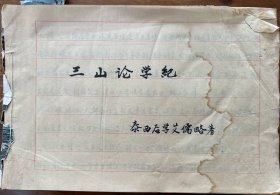 三山论学纪
泰西后学艾儒略著